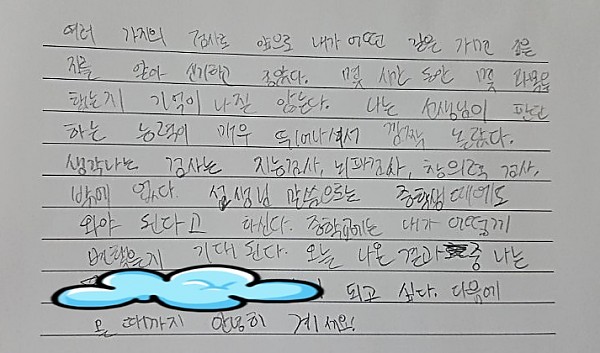 여러 가지의 검사로 앞으로 내가 어떤 길은 가면 좋은
지를 알아 신기하고 좋았다. 몇 시간 동안 몇 과목을
했는지 기억이 나질 않는다. 나는 선생님이 판단
하는 능력이 매우 뛰어나셔서 깜짝 놀랐다.
생각나는 검사는 지능검사, 뇌파검사, 창의력 검사,
밖에 없다. 선생님 말씀으로는 중학생 때에도
와야 된다고 하신다. 중학교에는 내가 어떻게
변했을지 기대된다. 오늘 나온 결과 중 나는
되고 싶다. 다음에
올 때까지 안녕히 계세요!